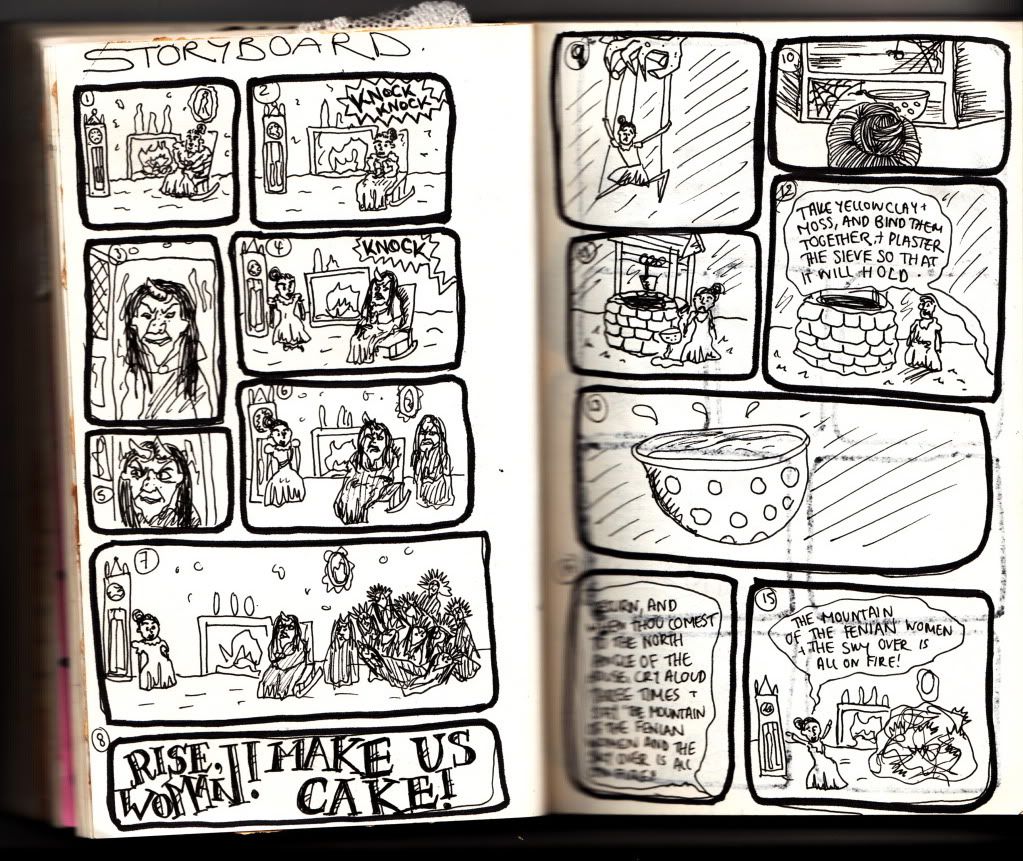 STORYBOARD.
1
2
KNOCK
KNOCK
3
4
KNOCK
5
6
7
8
RISE, WOMAN!! MAKE US
CAKE!
9
10
12
TAKE YELLOW CLAY +
MOSS, AND BIND THEM
TOGETHER, + PLASTER
THE SIEVE SO THAT
IT WILL HOLD.
13
RETURN, AND
WHEN THOU COMEST
TO THE NORTH
ANGLE OF THE
HOUSE, CRY ALOUD
THREE TIMES +
SAY "THE MOUNTAIN
OF THE FENIAN
WOMEN AND THE
SKY OVER IS ALL
ON FIRE!
15
THE MOUNTAIN
OF THE FENIAN WOMEN
+ THE SKY OVER IS
ALL ON FIRE!